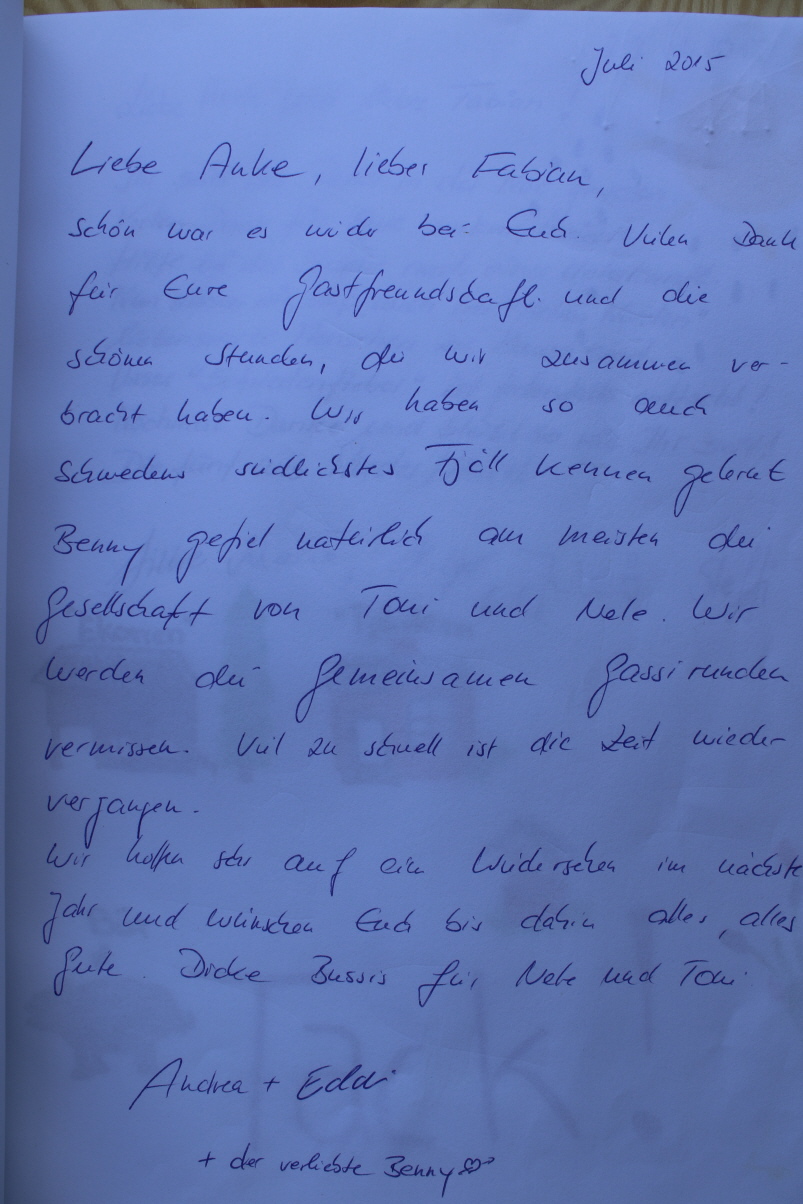 Juli 2015
Liebe Anke, lieber Fabian,
schön war es wieder bei Euch. Vielen Dank
für Eure Gastfreundschaft und die
schönen Stunden, die wir zusammen ver-
bracht haben. Wir haben so auch
Schwedens südlichstes Fjäll kennen gelernt
Benny gefiel natürlich am meisten die
Gesellschaft von Toni und Nele. Wir
werden die gemeinsamen Gassirunden
vermissen. Viel zu schnell ist die Zeit wieder
vergangen.
Wir hoffen sehr auf ein Wiedersehen im nächste
Jahr und wünschen Euch bis dahin alles, alles
Gute. Dicke Bussis für Nele und Toni
Andrea + Eddi
+ der verliebte Benny